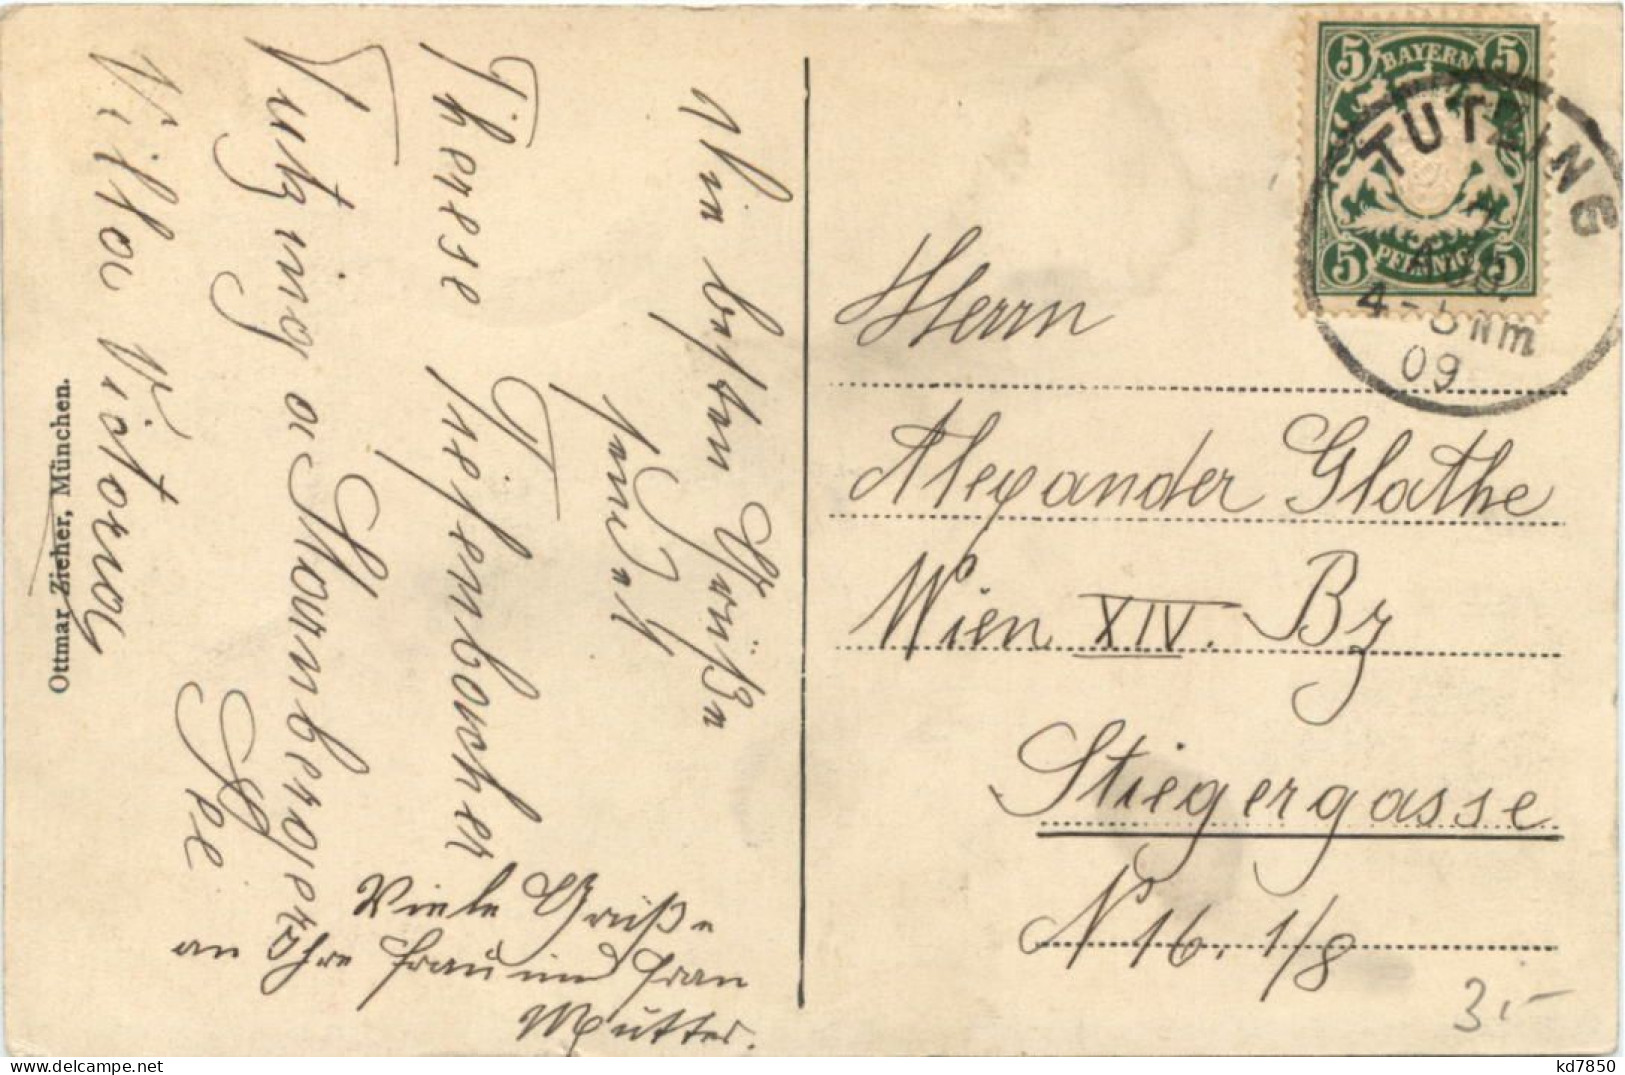 Die besten Grüße
sendet
Therese Tiefenbacher
Tutzing a Starnberger
See
Villa Vitoria
Viele Grüße
an Ihre Frau und Frau
Mutter.
Ottmar Zieher, München.
5 BAYERN 5
5 PFENNIG 5
TUTZING
4-5 Nm
09
Herrn
Alexander Glathe
Wien XIV. Bz
Stiegergasse
N 16. 1/8
3.-
kd7850